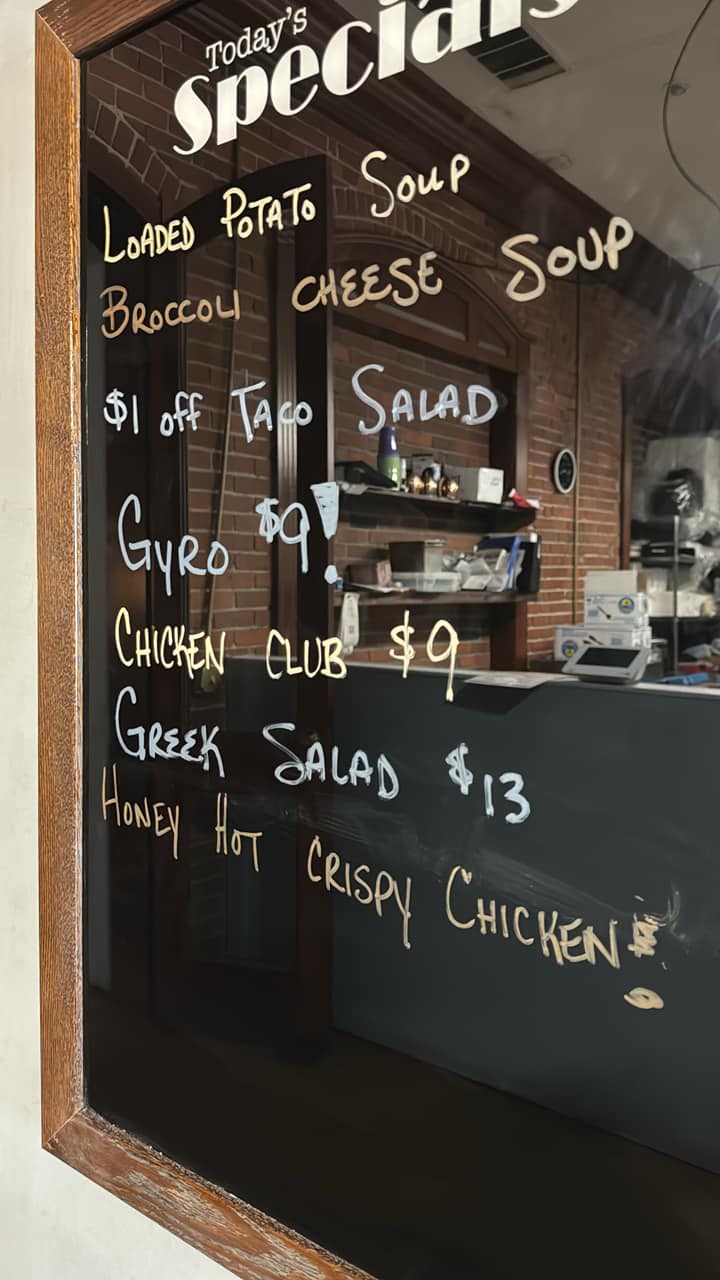 Today's
Specials
LOADED POTATO SOUP
BROCCOLI CHEESE SOUP
$1 off TACO SALAD
GYRO $9!
CHICKEN CLUB $9
GREEK SALAD $13
HONEY HOT CRISPY CHICKEN!